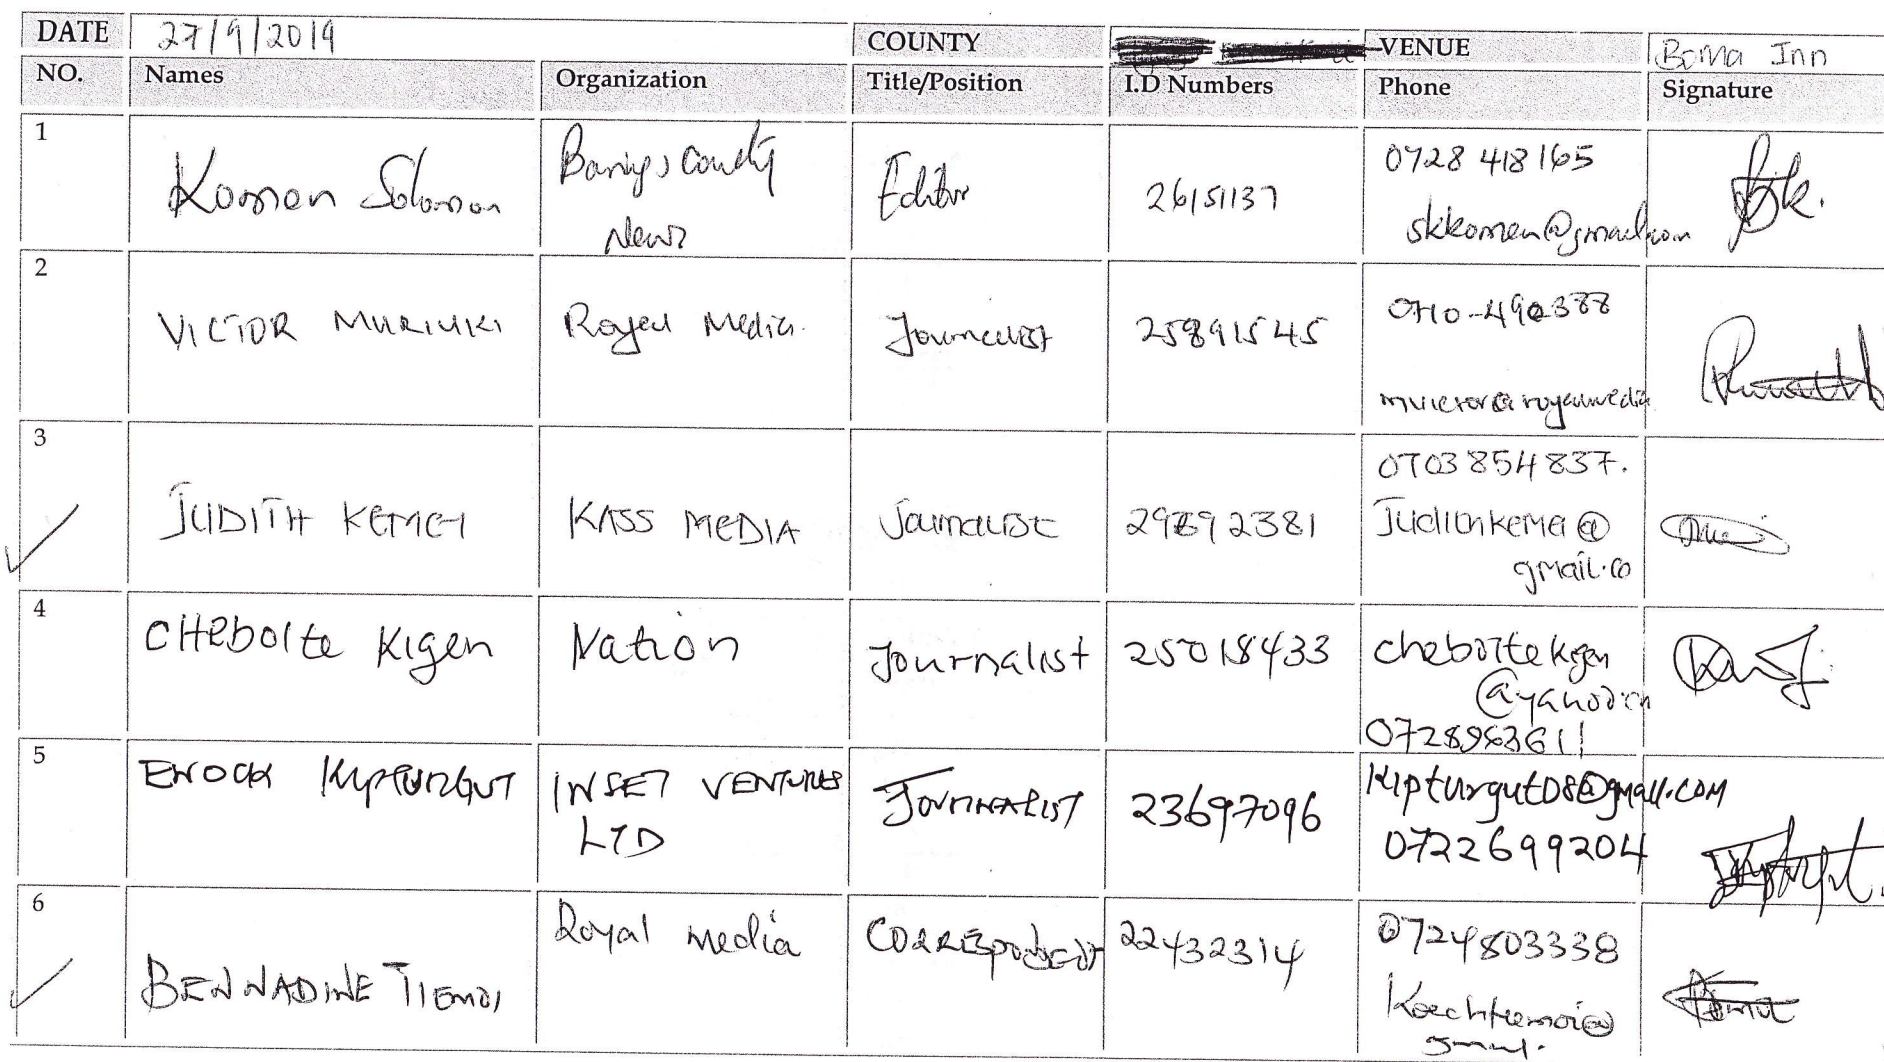 DATE 27/9/2019 COUNTY VENUE Boma Inn
NO. Names Organization Title/Position I.D Numbers Phone Signature
1 Komen Solomon County News Editor 26151137 0728 418 165
skkomen@gmail.com
2 VICTOR MURIUKI Royal Media Journalist 25891545 0710-490388
mvictor@royalmedia
3 JUDITH KEMEI KASS MEDIA Journalist 29892381 0703854837.
Judithkemei@
gmail.co
4 CHEbolte Kigen Nation Journalist 25018433 cheboltekigen
@yahoo.cm
5 ENOCK KIPTURGUT INSET VENTURES LTD JOURNALIST 23697096 kipturgut08@gmail.com
0722699204
6 BENNADINE TIEMOI Royal media CORRESPONDENT 22432314 0724803338
Koechtiemoi@
gmail.